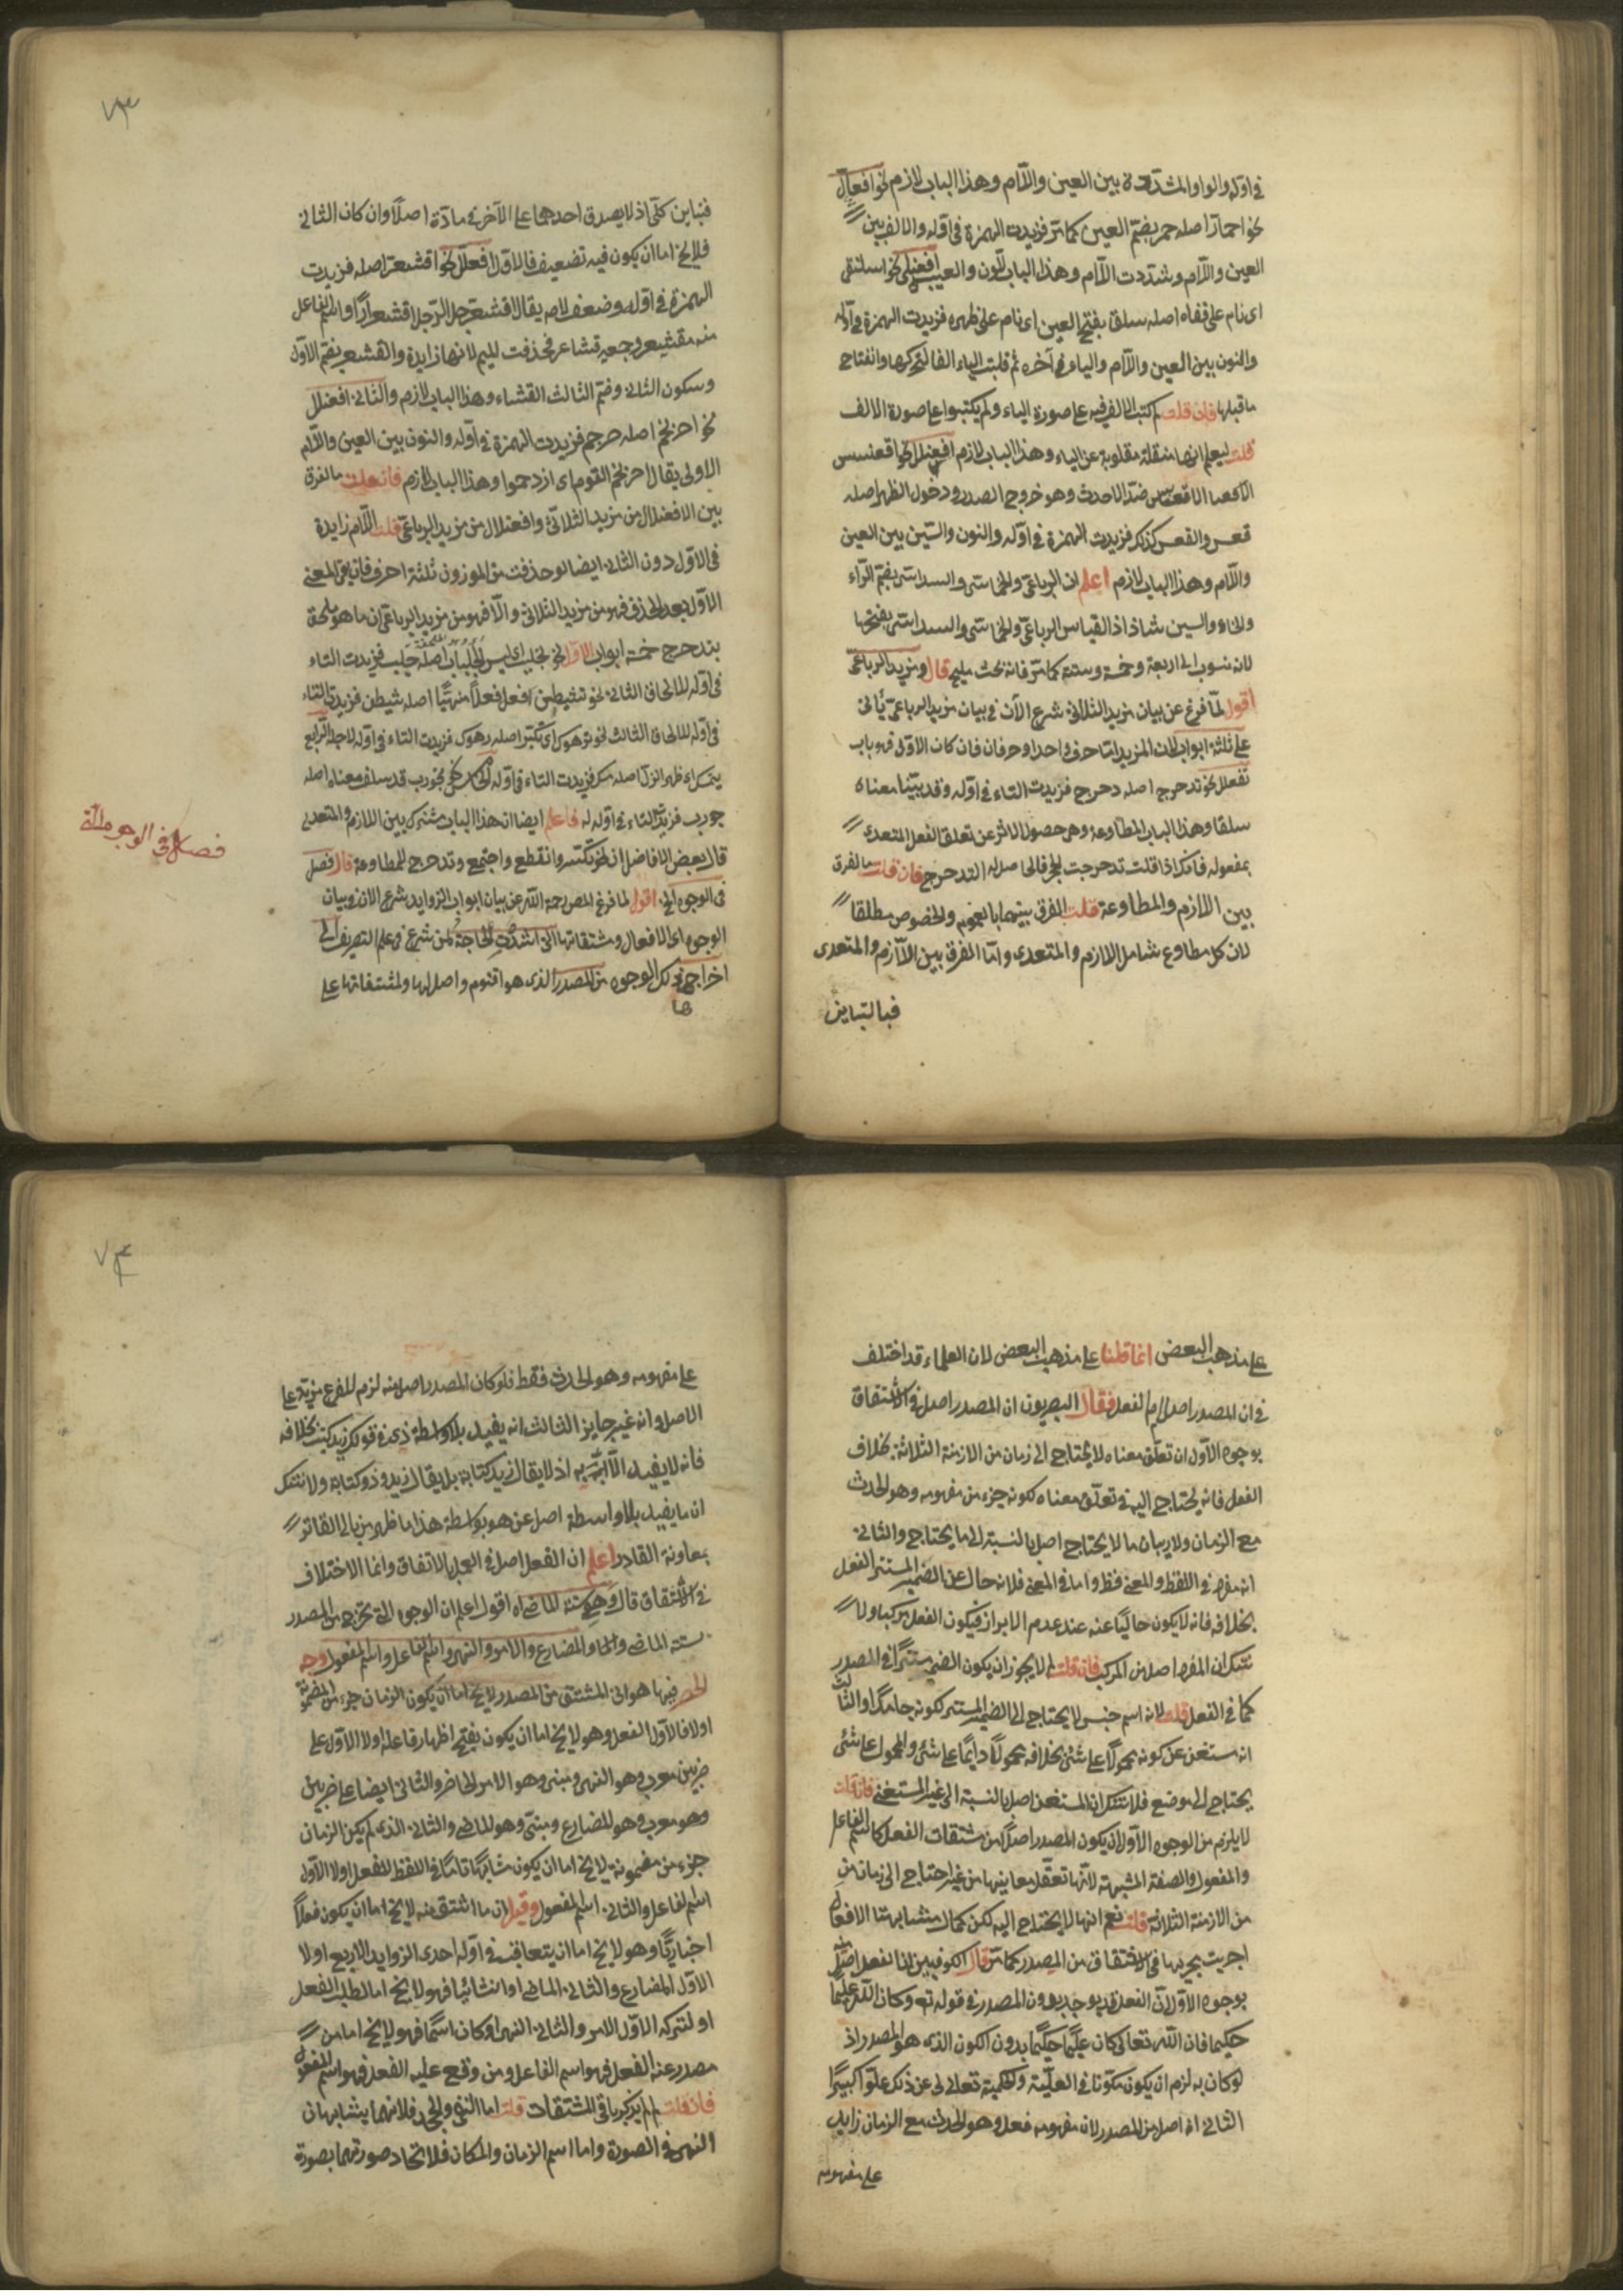 في اوله والواو المشددة بين العين واللام وهذا الباب لازم نحو افعال
نحو احمار اصله حمر بضم العين كما مر فزيدت الهمزة في اوله والالف بين
العين واللام وشددت اللام وهذا الباب للون والعيب افعنلى نحو اسلنقى
اى نام على قفاه اصله سلق بفتح العين اى نام على ظهره فزيدت الهمزة في اوله
والنون بين العين واللام والياء في آخره ثم قلبت الياء الفا لتحركها وانفتاح
ما قبلها فان قلت لم كتب الالف فيه على صورة الياء ولم يكتبوا على صورة الالف
قلت ليعلم انها منقلبة مقلوبة عن الياء وهذا الباب لازم افعنلل نحو اقعنسس
الاقعس ضد الاحدب وهو خروج الصدر ودخول الظهر اصله
قعس والقعس كذلك فزيدت الهمزة في اوله والنون والسين بين العين
واللام وهذا الباب لازم اعلم ان الرباعى والخماسى والسداسى بضم الراء
والخاء والسين شاذ اذ القياس الرباعى والخماسى والسداسى بفتحها
لانه منسوب الى اربعة وخمسة وستة كما مر فانه بحث مليح قال ومزيد الرباعى
اقول لما فرغ عن بيان مزيد الثلاثى شرع الآن في بيان مزيد الرباعى
على ثلثة ابواب لان المزيد اما حرف واحد او حرفان فان كان الاول فهو باب
تفعلل نحو تدحرج اصله دحرج فزيدت التاء في اوله وقد بينا معناه
سلفا وهذا الباب للمطاوعة وهى حصول الاثر عن تعلق الفعل المتعدى
بمفعوله فانك اذا قلت تدحرجت الحجر فالحاصل له التدحرج فان قلت ما الفرق
بين اللازم والمطاوعة قلت الفرق بينهما بالعموم والخصوص مطلقا
لان كل مطاوع شامل اللازم والمتعدى واما الفرق بين اللازم والمتعدى
فبالتباين
٧٣
فتباين كلى اذ لا يصدق احدهما على الآخر في مادة اصلا وان كان الثانى
فلا يخ اما ان يكون فيه تضعيف فالاول افعلل نحو اقشعر اصله فزيدت
الهمزة في اوله وضعف لامه يقال اقشعر جلد الرجل اقشعرارا واسم الفاعل
منه مقشعر وجمعه قشاعر فحذفت الميم لانها زايدة والقشعر بضم الاول
وسكون الثانى وضم الثالث القثاء وهذا الباب لازم والثانى افعنلل
نحو احرنجم اصله حرجم فزيدت الهمزة في اوله والنون بين العين واللام
الاولى يقال احرنجم القوم اى ازدحموا وهذا الباب لازم فان قلت ما الفرق
بين الافعنلال من مزيد الثلاثى وافعنلال من مزيد الرباعى قلت اللام زايدة
في الاول دون الثانى ايضا لو حذفت من الموزون ثلثة احرف فان بقى المعنى
الاول بعد الحذف فهو من مزيد الثلاثى والا فهو من مزيد الرباعى ان ما هو ملحق
بتدحرج خمسة ابواب الاول نحو تجلبب اى لبس الجلباب اصله جلب فزيدت التاء
في اوله للالحاق الثانى نحو تشيطن اى فعل فعلا منهيا اصله شيطن فزيدت التاء
في اوله للالحاق الثالث نحو ترهوك اى تكبر اصله رهوك فزيدت التاء في اوله لاجله الرابع
تمسكن اى ظهر الذل اصله مسكن فزيدت التاء في اوله الخامس نحو تجورب قد سلف معناه اصله
جورب فزيدت التاء في اوله له فاعلم ايضا ان هذا الباب مشترك بين اللازم والمتعدى
قال بعض الافاضل ان نحو تكسر وانقطع واجتمع وتدحرج للمطاوعة قال فصل
في الوجوه الخ اقول لما فرغ المص رحمه الله عن بيان ابواب الزوايد شرع الان في بيان
الوجوه اى الافعال ومشتقاتها التى اشتدت الحاجة لمن شرع في علم التصريف الى
اخراج تلك الوجوه من المصدر الذى هو اقنوم واصل لها ولمشتقاتها على
ها
فصل في الوجوه التى
على مذهب البعض انما قلنا على مذهب البعض لان العلماء قد اختلف
في ان المصدر اصل ام الفعل فقال البصريون ان المصدر اصل في الاشتقاق
بوجوه الاول ان تعلق معناه لا يحتاج الى زمان من الازمنة الثلاثة بخلاف
الفعل فانه يحتاج اليه في تعلق معناه لكونه جزء من مفهومه وهو الحدث
مع الزمان ولا ريب ان ما لا يحتاج اصل بالنسبة الى ما يحتاج والثانى
انه مفرد في اللفظ والمعنى فظ واما في المعنى فلانه خال عن الضمير المستتر الفعل
بخلافه فانه لا يكون خاليا عنه عند عدم الابراز فيكون الفعل مركبا ولا
شك ان المفرد اصل من المركب فان قلت لم لا يجوز ان يكون الضمير مستترا في المصدر
كما في الفعل قلت لانه اسم جنس لا يحتاج الى الضمير المستتر لكونه جامدا والثالث
انه مستغن عن كونه محمولا على شئ بخلافه محمولا دايما على شئ والمحمول على شئ
يحتاج الى موضع فلا شك ان المستغن اصل بالنسبة الى غير المستغنى فان قلت
لا يلزم من الوجوه الاول ان يكون المصدر اصلا من مشتقات الفعل كاسم الفاعل
والمفعول والصفة المشبهة لانها تعقل معانيها من غير احتياج الى زمان من
من الازمنة الثلاثة قلت نعم انها لا يحتاج اليه لكن كمال مشابهتنا الافعال
اجريت مجريها في الاشتقاق من المصدر كما مر قال الكوفيين ان الفعل اصل منه
بوجوه الاول ان الفعل قد يوجد بدون المصدر في قوله تع وكان الله عليما
حكيما فان الله تعالى كان عليما حكيما بدون الكون الذى هو المصدر اذ
لو كان به لزم ان يكون مكونا في العلمية والحكمية تعالى الى عن ذلك علوا كبيرا
الثانى انه اصل من المصدر لان مفهومه فعل وهو الحدث مع الزمان زايد
على مفهومه
٧٤
على مفهومه وهو الحدث فقط فلو كان المصدر اصل منه لزم للفرع مزية على
الاصل وانه غير جايز الثالث انه يفيد بلا واسطة ذى في قولك زيد كتب بخلافه
فانه لا يفيد الا به اذ لا يقال زيد كتابة بل يقال زيد ذو كتابة ولا شك
ان ما يفيد بلا واسطة اصل عن هو بواسطة هذا ما ظهر من بالى الفاتر
بمعاونة القادر اعلم ان الفعل اصل في العمل بالاتفاق وانما الاختلاف
في الاشتقاق قال وهى ستة الماضى اه اقول اعلم ان الوجوه التى تخرج من المصدر
ستة الماضى والمضارع والامر والنهى واسم الفاعل واسم المفعول وجه
الحصر فيها هو ان المشتق من المصدر لا يخ اما ان يكون الزمان جزء من مفهومه
اولا فالاول الفعل وهو لا يخ اما ان يكون يفتح اظهار فاعله اولا الاول على
ضربين معرب وهو النهى ومبنى وهو الامر الحاضر والثانى ايضا على ضربين
وهو معرب وهو المضارع ومبنى وهو الماضى والثانى الذى لم يكن الزمان
جزء من مفهومه لا يخ اما ان يكون مشاركا تاما في اللفظ للفعل اولا الاول
اسم الفاعل والثانى اسم المفعول وقيل ان ما اشتق منه لا يخ اما ان يكون فعلا
اخباريا وهو لا يخ اما ان يتعاقب في اوله احدى الزوايد الاربع اولا
الاول المضارع والثانى الماضى او انشائيا فهو لا يخ اما لطلب الفعل
او لتركه الاول الامر والثانى النهى او كان اسما فهو لا يخ اما من
صدر عنه الفعل فهو اسم الفاعل ومن وقع عليه الفعل فهو اسم المفعول
فان قلت لم لم يذكر باقى المشتقات قلت اما النفى والجحد فلانهما يشابهان
النهى في الصورة واما اسم الزمان والمكان فلاتحاد صورتهما بصورة